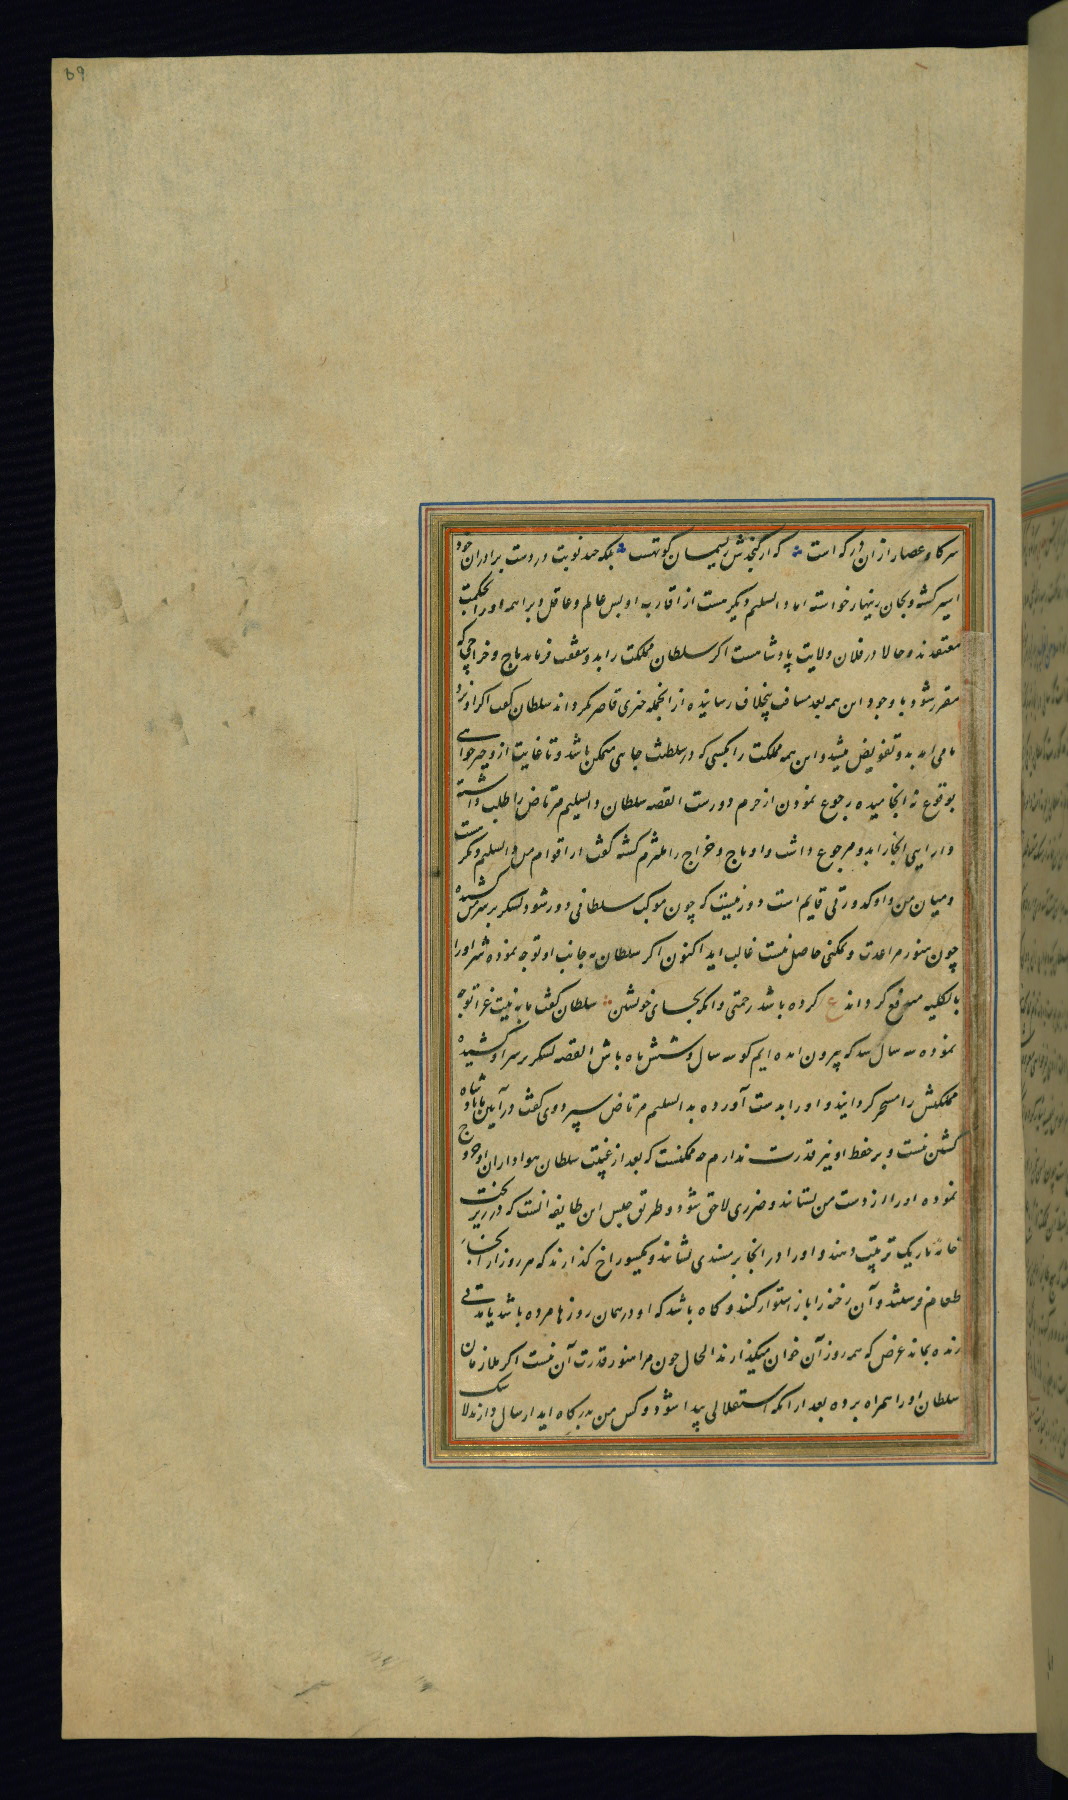 69
سر گاو عصار ازان در که است که از کنجدش ریسمان کوتهست بلکه چند نوبت در دست برادران خود
اسیر گشته و بجان زینهار خواسته اما دابشلیم دیگر هست از اقارب او بس عالم و عاقل و براهمه او را بحکمت
معتقدند و حالا در فلان ولایت پادشاهست اگر سلطان مملکت را بدو شفقت فرماید باج و خراجی که
مقرر شود با وجود این همه بعد مسافت بیخلاف رسانیده از آنجمله چیزی قاصر نگرداند سلطان گفت اگر او نزد
ما می آمد بدو تفویض میشد و این همه مملکت را بکسی که در سلطنت جایی متمکن باشد و تا غایت ازو چیز خواهی
بوقوع نه انجامیده رجوع نمودن از حزم دورست القصه سلطان دابشلیم مرتاض را طلب داشته
دارایی آنجا را بدو مرجوع داشت و او باج و خراج را ملتزم گشته گفت از اقوام من دابشلیم دیگر هست
و میان من و او کدورتی قایم است و دور نیست که چون موکب سلطانی دور شود لشکر بر سر من کشیده
چون هنوز مرا عدت و تمکنی حاصل نیست غالب آید اکنون اگر سلطان به جانب او توجه نموده شر او را
بالکلیه مندفع گرداند ع کرده باشد رحمتی وانگه بجای خویشتن سلطان گفت ما به نیت غزا توجه
نموده سه سال شد که بیرون آمده ایم گو سه سال و شش ماه باش القصه لشکر بر سر او کشیده
مملکتش را مسخر گردانید و او را بدست آورده به دابشلیم مرتاض سپرد وی گفت در آیین ما پادشاه
کشتن نیست و بر حفظ او نیز قدرت ندارم چه ممکنست که بعد از غیبت سلطان هواداران او خروج
نموده او را از دست من بستانند و ضرری لاحق شود و طریق حبس این طایفه آنست که در زیر تخت
خانه تاریک ترتیب دهند و او را در آنجا بر مسندی نشانند و یکسوراخ گذارند که هر روز از آنجا
طعام فرستند و آن رخنه را باز استوار کنند و گاه باشد که او در همان روزها مرده باشد یا مدتی
زنده بماند غرض که همه روز آن خوان میگذارند الحال چون مرا هنوز قدرت آن نیست اگر ملازمان
سلطان او را همراه برده بعد از آنکه استقلالی پیدا شود و کس من بدرگاه آید ارسال دارند لا شک